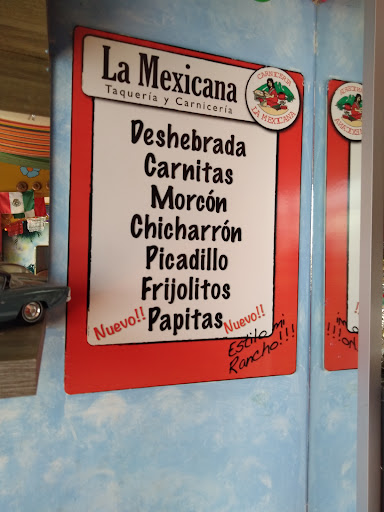 La Mexicana
Taquería y Carnicería
CARNICERÍA
LA MEXICANA
Deshebrada
Carnitas
Morcón
Chicharrón
Picadillo
Frijolitos
Nuevo!! Papitas Nuevo!!
Estilo mi
Rancho!!!